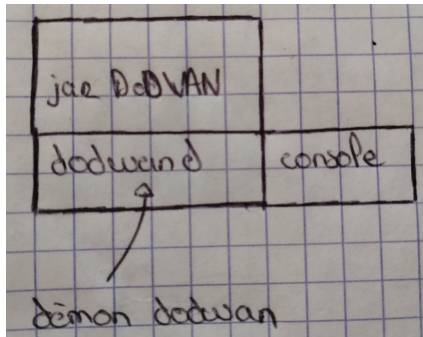 jar DoDWAN
dodwand console
démon dodwan